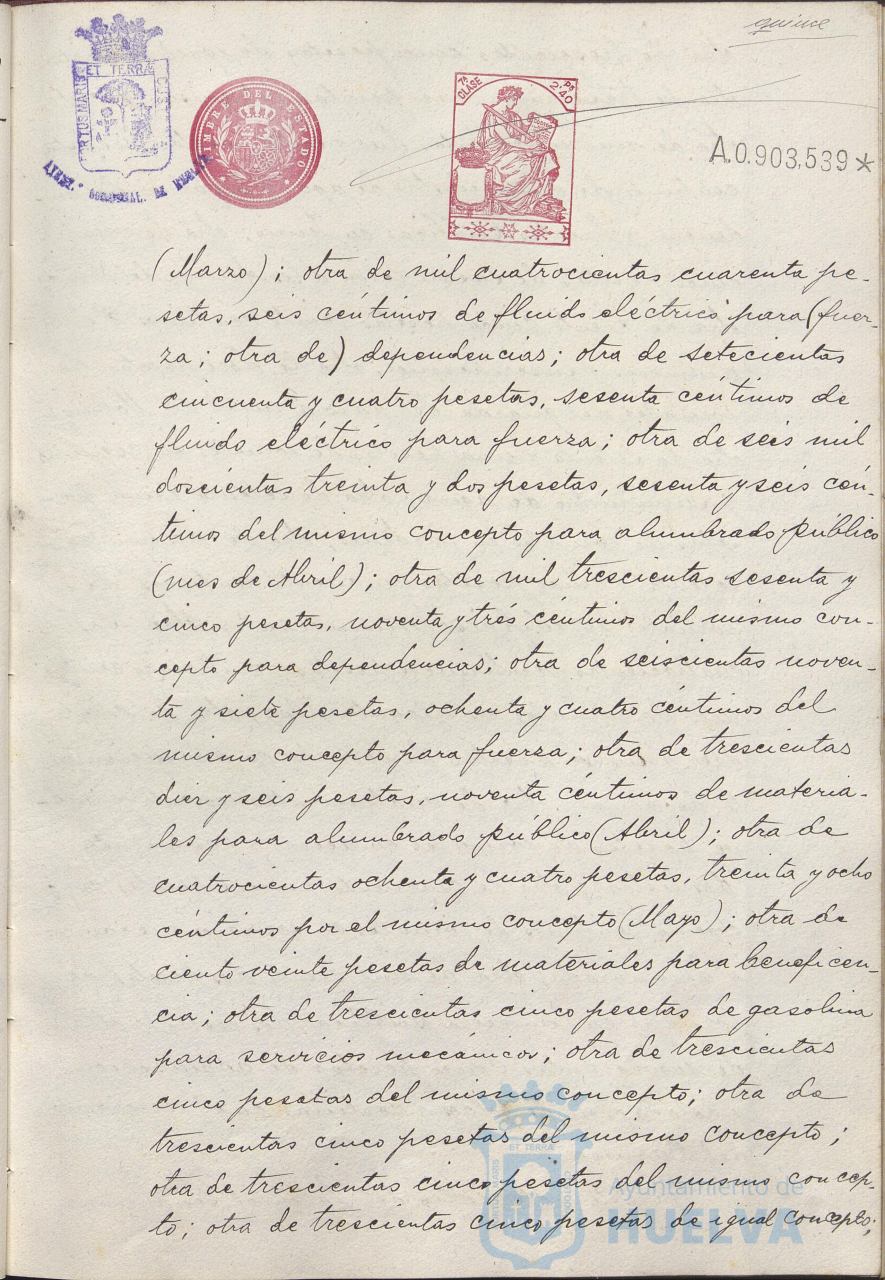 quince
PORTUS MARIS ET TERRÆ CUSTODIA
TIMBRE DEL ESTADO
7ª CLASE
2'40 Pª
A.0.903,539*
(Marzo); otra de mil cuatrocientas cuarenta pe-
setas, seis céntimos de fluido eléctrico para (fuer-
za; otra de) dependencias; otra de setecientas
cincuenta y cuatro pesetas, sesenta céntimos de
fluido eléctrico para fuerza; otra de seis mil
doscientas treinta y dos pesetas, sesenta y seis cén-
timos del mismo concepto para alumbrado público
(mes de Abril); otra de mil trescientas sesenta y
cinco pesetas, noventa y trés céntimos del mismo con-
cepto para dependencias; otra de seiscientas noven-
ta y siete pesetas, ochenta y cuatro céntimos del
mismo concepto para fuerza; otra de trescientas
diez y seis pesetas, noventa céntimos de materia-
les para alumbrado público (Abril); otra de
cuatrocientas ochenta y cuatro pesetas, treinta y ocho
céntimos por el mismo concepto (Mayo); otra de
ciento veinte pesetas de materiales para beneficen-
cia; otra de trescientas cinco pesetas de gasolina
para servicios mecánicos; otra de trescientas
cinco pesetas del mismo concepto; otra de
trescientas cinco pesetas del mismo concepto;
otra de trescientas cinco pesetas del mismo concep-
to; otra de trescientas cinco pesetas de igual concepto;
Ayuntamiento de
HUELVA